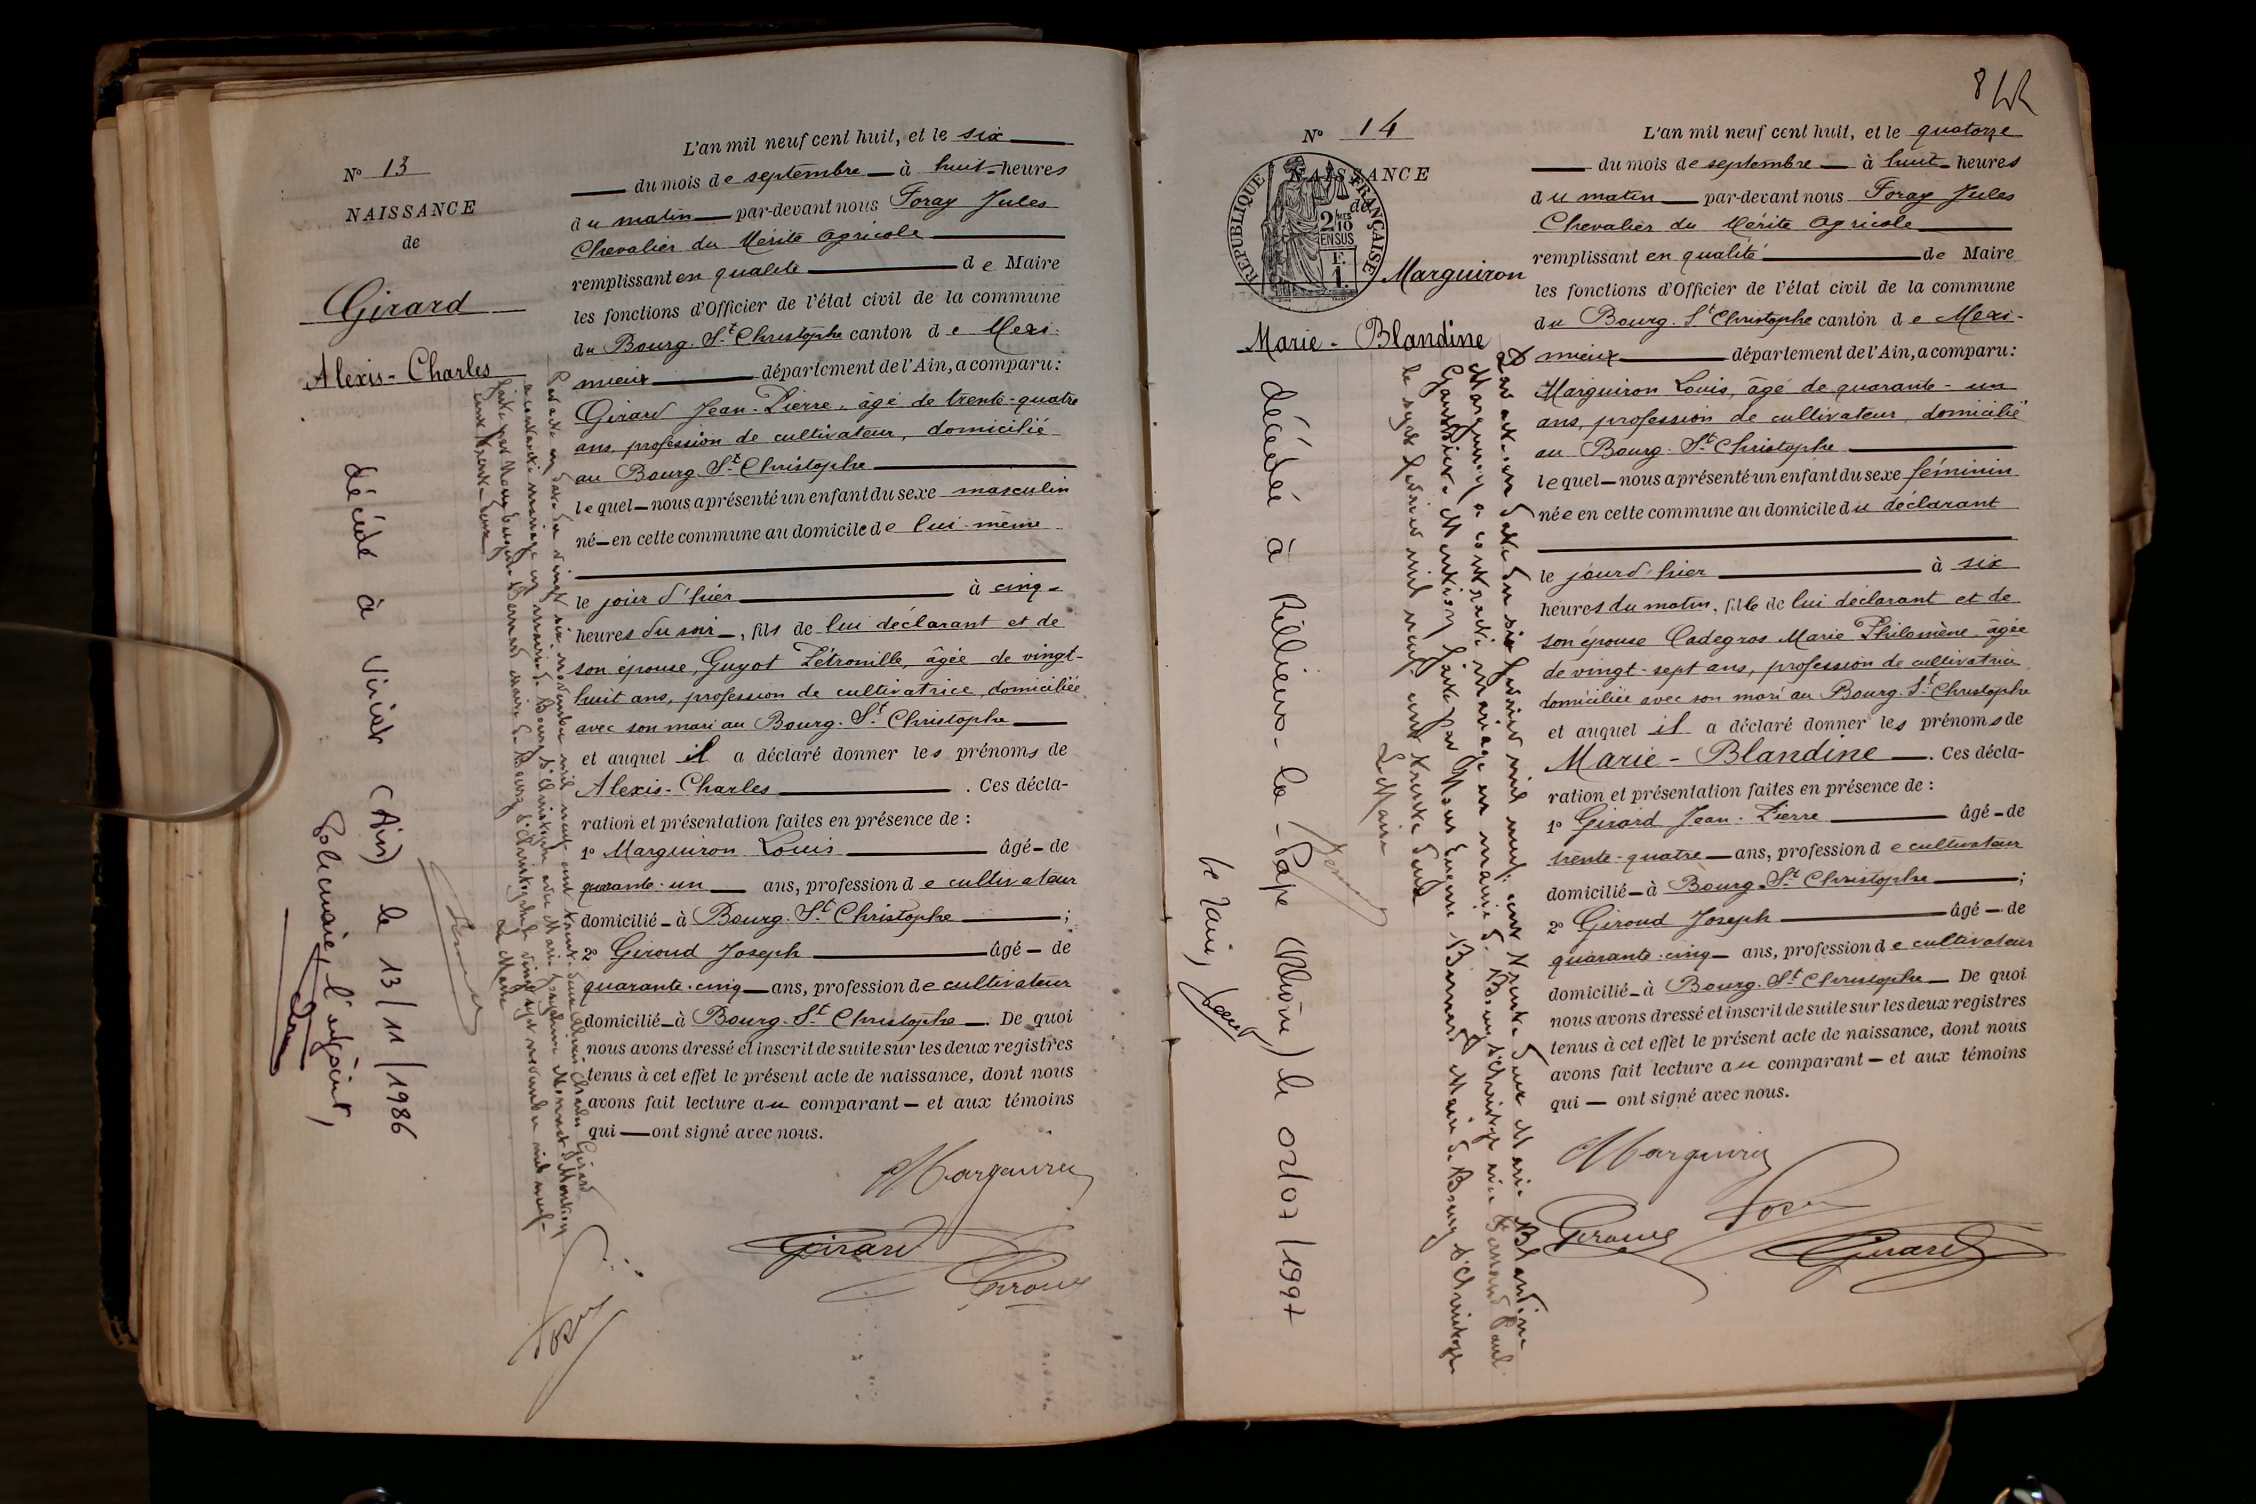 N° 13
NAISSANCE
de
Girard
Alexis-Charles
L'an mil neuf cent huit, et le six
du mois de septembre à huit heures
du matin par-devant nous Foray Jules
Chevalier du Mérite agricole
remplissant en qualité de Maire
les fonctions d'Officier de l'état civil de la commune
du Bourg-St Christophe canton de Mexi-
mieux département de l'Ain, a comparu:
Girard Jean-Pierre, âgé de trente-quatre
ans, profession de cultivateur, domicilié
au Bourg-St Christophe
lequel nous a présenté un enfant du sexe masculin
né en cette commune au domicile de lui-même
le jour d'hier à cinq
heures du soir, fils de lui déclarant et de
son épouse, Guyot Pétronille, âgée de vingt-
huit ans, profession de cultivatrice, domiciliée
avec son mari au Bourg-St Christophe
et auquel il a déclaré donner les prénoms de
Alexis-Charles. Ces décla-
ration et présentation faites en présence de :
1° Marguiron Louis âgé de
quarante-un ans, profession de cultivateur
domicilié à Bourg-St Christophe ;
2° Giroud Joseph âgé de
quarante-cinq ans, profession de cultivateur
domicilié à Bourg-St Christophe. De quoi
nous avons dressé et inscrit de suite sur les deux registres
tenus à cet effet le présent acte de naissance, dont nous
avons fait lecture au comparant et aux témoins
qui ont signé avec nous.
Girard
décédé à Viriat (Ain) le 13/11/1986
Le Maire
84
N° 14
NAISSANCE
de
RÉPUBLIQUE FRANÇAISE
2/10 EN SUS
1F.
Marguiron
Marie-Blandine
L'an mil neuf cent huit, et le quatorze
du mois de septembre à huit heures
du matin par-devant nous Foray Jules
Chevalier du Mérite agricole
remplissant en qualité de Maire
les fonctions d'Officier de l'état civil de la commune
du Bourg-St Christophe canton de Mexi-
mieux département de l'Ain, a comparu:
Marguiron Louis, âgé de quarante-un
ans, profession de cultivateur, domicilié
au Bourg-St Christophe
lequel nous a présenté un enfant du sexe féminin
née en cette commune au domicile du déclarant
le jour d'hier à six
heures du matin, fille de lui déclarant et de
son épouse Cadegros Marie Philomène âgée
de vingt-sept ans, profession de cultivatrice
domiciliée avec son mari au Bourg-St Christophe
et auquel il a déclaré donner les prénoms de
Marie-Blandine. Ces décla-
ration et présentation faites en présence de :
1° Girard Jean-Pierre âgé de
trente-quatre ans, profession de cultivateur
domicilié à Bourg-St Christophe ;
2° Giroud Joseph âgé de
quarante-cinq ans, profession de cultivateur
domicilié à Bourg-St Christophe De quoi
nous avons dressé et inscrit de suite sur les deux registres
tenus à cet effet le présent acte de naissance, dont nous
avons fait lecture au comparant et aux témoins
qui ont signé avec nous.
Girard
Par acte en date du six février mil neuf cent trente deux Marie Blandine
Marguiron a contracté mariage en mairie de Bourg St Christophe avec Ferrand Paul
le sept février mil neuf cent trente deux
Le Maire
décédée à Rillieux-la-Pape (Rhône) le 02/07/1997